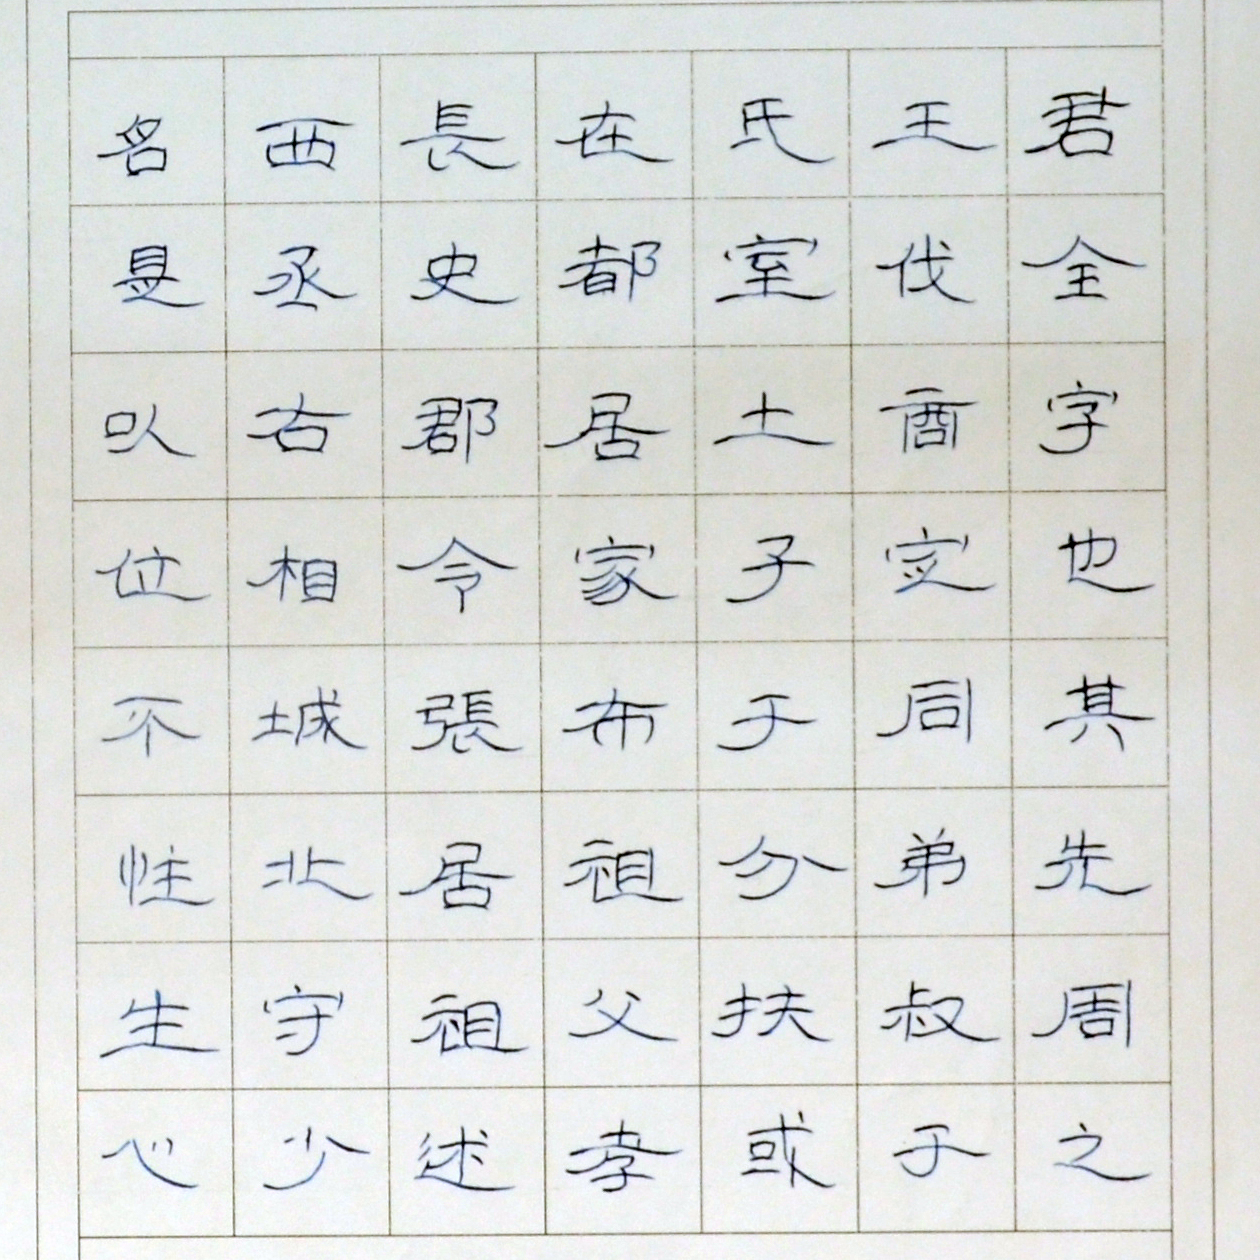 君全字也其先周之
王伐商定同弟叔于
氏室土子于分扶或
在都居家布祖父孝
長史郡令張居祖述
西丞右相城北守少
名是以位不性生心